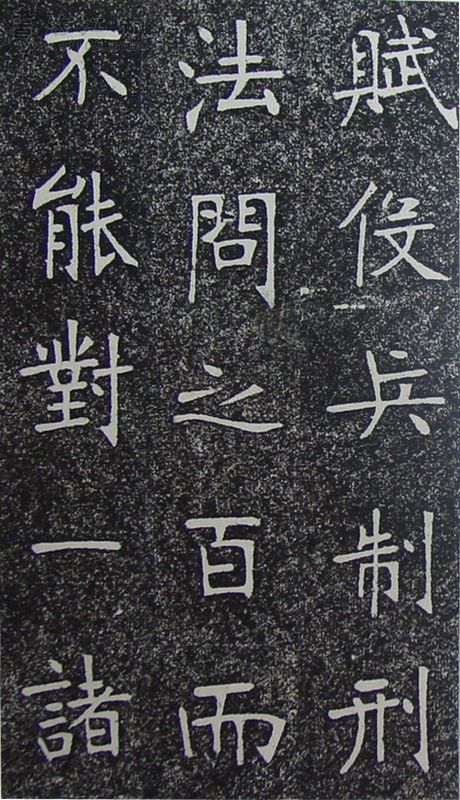 賦役兵制刑
法問之百而
不能對一諸